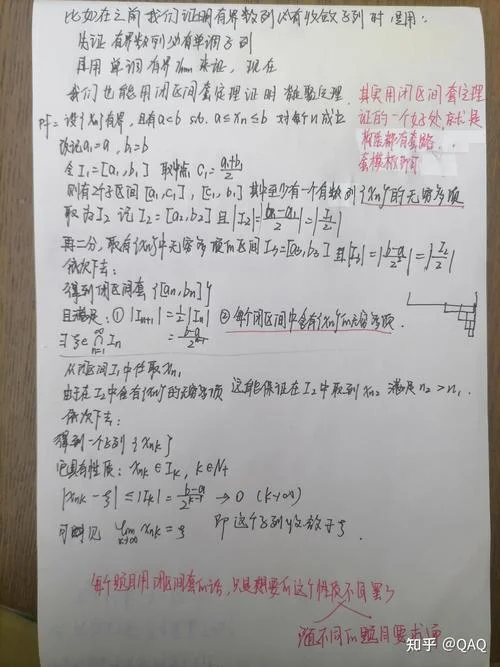 比如在之前我们证明有界数列必有收敛子列时是用:
先证有界数列必有单调子列
再用单调有界Thm来证, 现在
我们也能用闭区间套定理证明 致密定理.
其实用闭区间套定理
证的一个好处就是
构造都有套路...
套模板即可
pf = 设{xn}有界, 且有a<b s.t. a≤xn≤b 对每个n成立
改记a1=a, b1=b
令I1=[a1,b1] 取中点 C1=(a1+b1)/2
则有2个子区间[a1,C1], [C1,b1]其中至少有一个有数列{xn}的无穷多项
取为I2 记I2=[a2,b2] 且|I2|=|(b1-a1)/2|=|I1/2|
再二分, 取有{xn}中无穷多项的区间I3=[a3,b3] 且|I3|=|(b-a)/2²|=|I2/2|
依次下去:
得到闭区间套{[an,bn]}
且满足: ① |In+1|=1/2|In| ② 每个闭区间中含有{xn}的无穷多项.
=(b-a)/2ⁿ
∃ξ∈∩In n=1 ∞
从闭区间I1中任取xn1
由于在I2中含有{xn}的无穷多项 这能保证在I2中取到xn2 满足n2>n1.
依次下去:
得到一个子列{xnk}
它具有性质: xnk∈Ik, k∈N+
|xnk-ξ|≤|Ik|=(b-a)/2^(k-1) → 0 (k→∞)
可则见 lim k→∞ xnk=ξ 即这个子列收敛于ξ.
每个题目用闭区间套的话, 只是想要的这个性质不同罢了
随不同的题目要求而
知乎 @QAQ